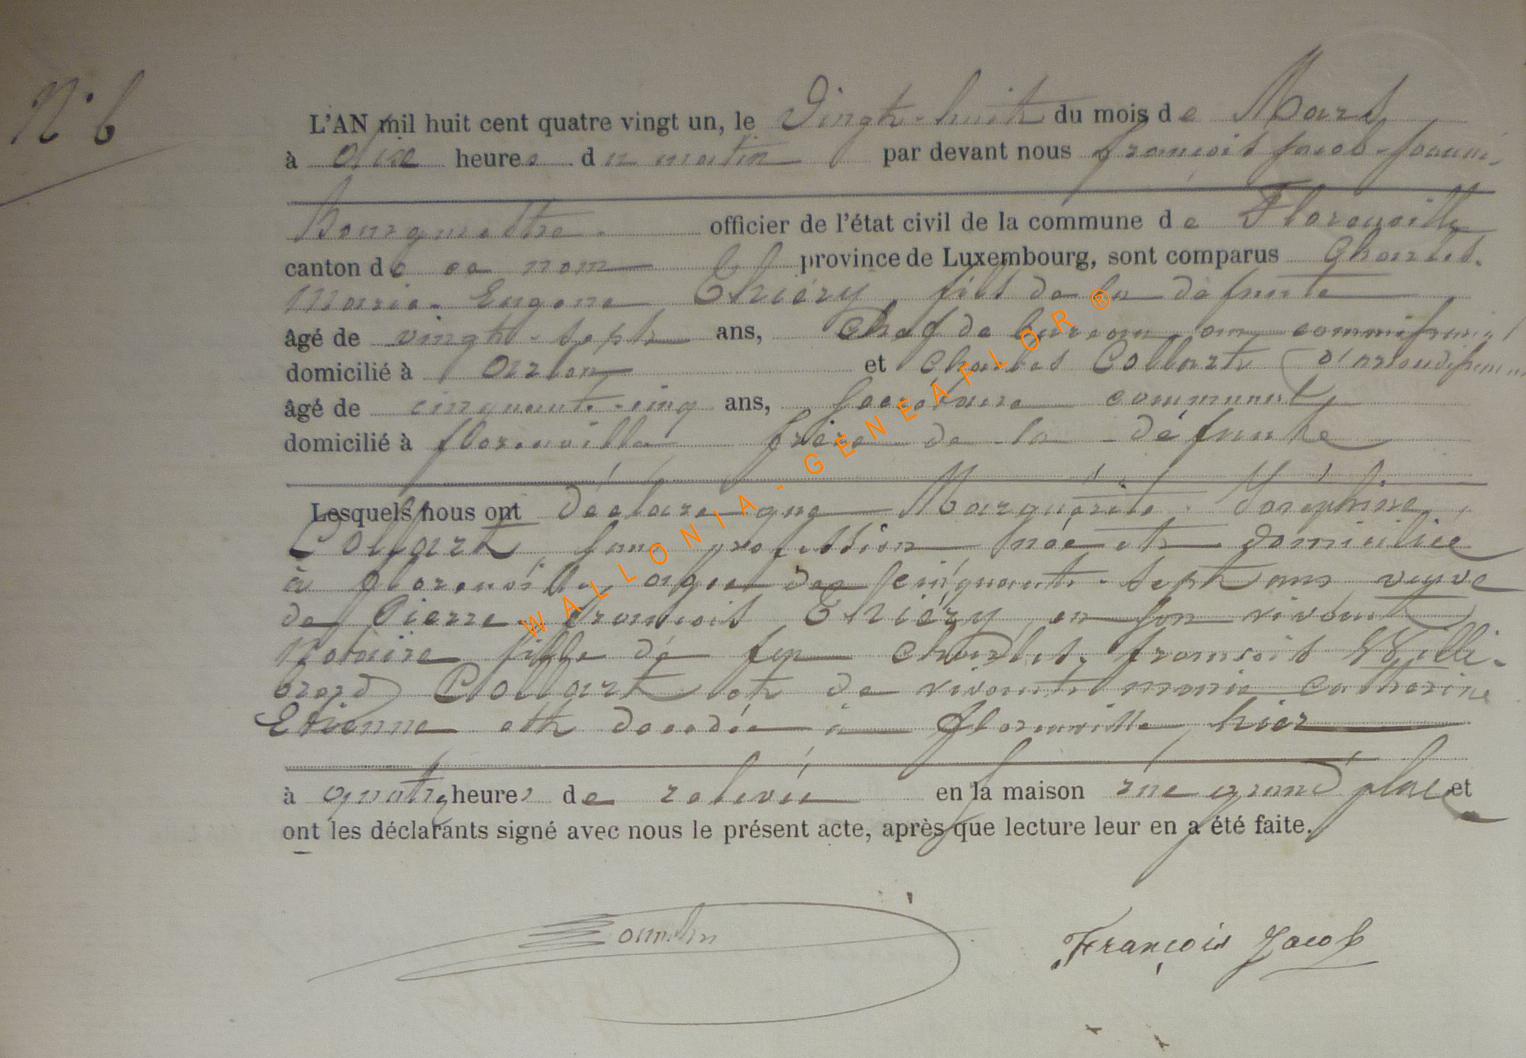 N° 6
L'AN mil huit cent quatre vingt un, le Vingt-huit du mois de Mars
à dix heures du matin par devant nous françois Jacob
Bourgmestre officier de l'état civil de la commune de Florenville
canton de ce nom province de Luxembourg, sont comparus Charles
Marie Eugene Thiéry, fils de la défunte
âgé de vingt-sept ans, chef de bureau au
domicilié à Arlon et Charles Collart d'arrondissement
âgé de cinquante-cinq ans, Secrétaire communal
domicilié à florenville frère de la défunte
Lesquels nous ont déclaré que Marguérite Joséphine
Collart, sans profession née et domiciliée
à florenville, agée de cinquante-sept ans veuve
de Pierre françois Thiéry, en son vivant
Notaire fille de feu Charles, françois Willi-
brord Collart et de vivante marie catherine
Etienne est décédée à florenville, hier
à quatre heures de relevée en la maison rue grand place et
ont les déclarants signé avec nous le présent acte, après que lecture leur en a été faite.
François Jacob
WALLONIA-GENEAFLOR®